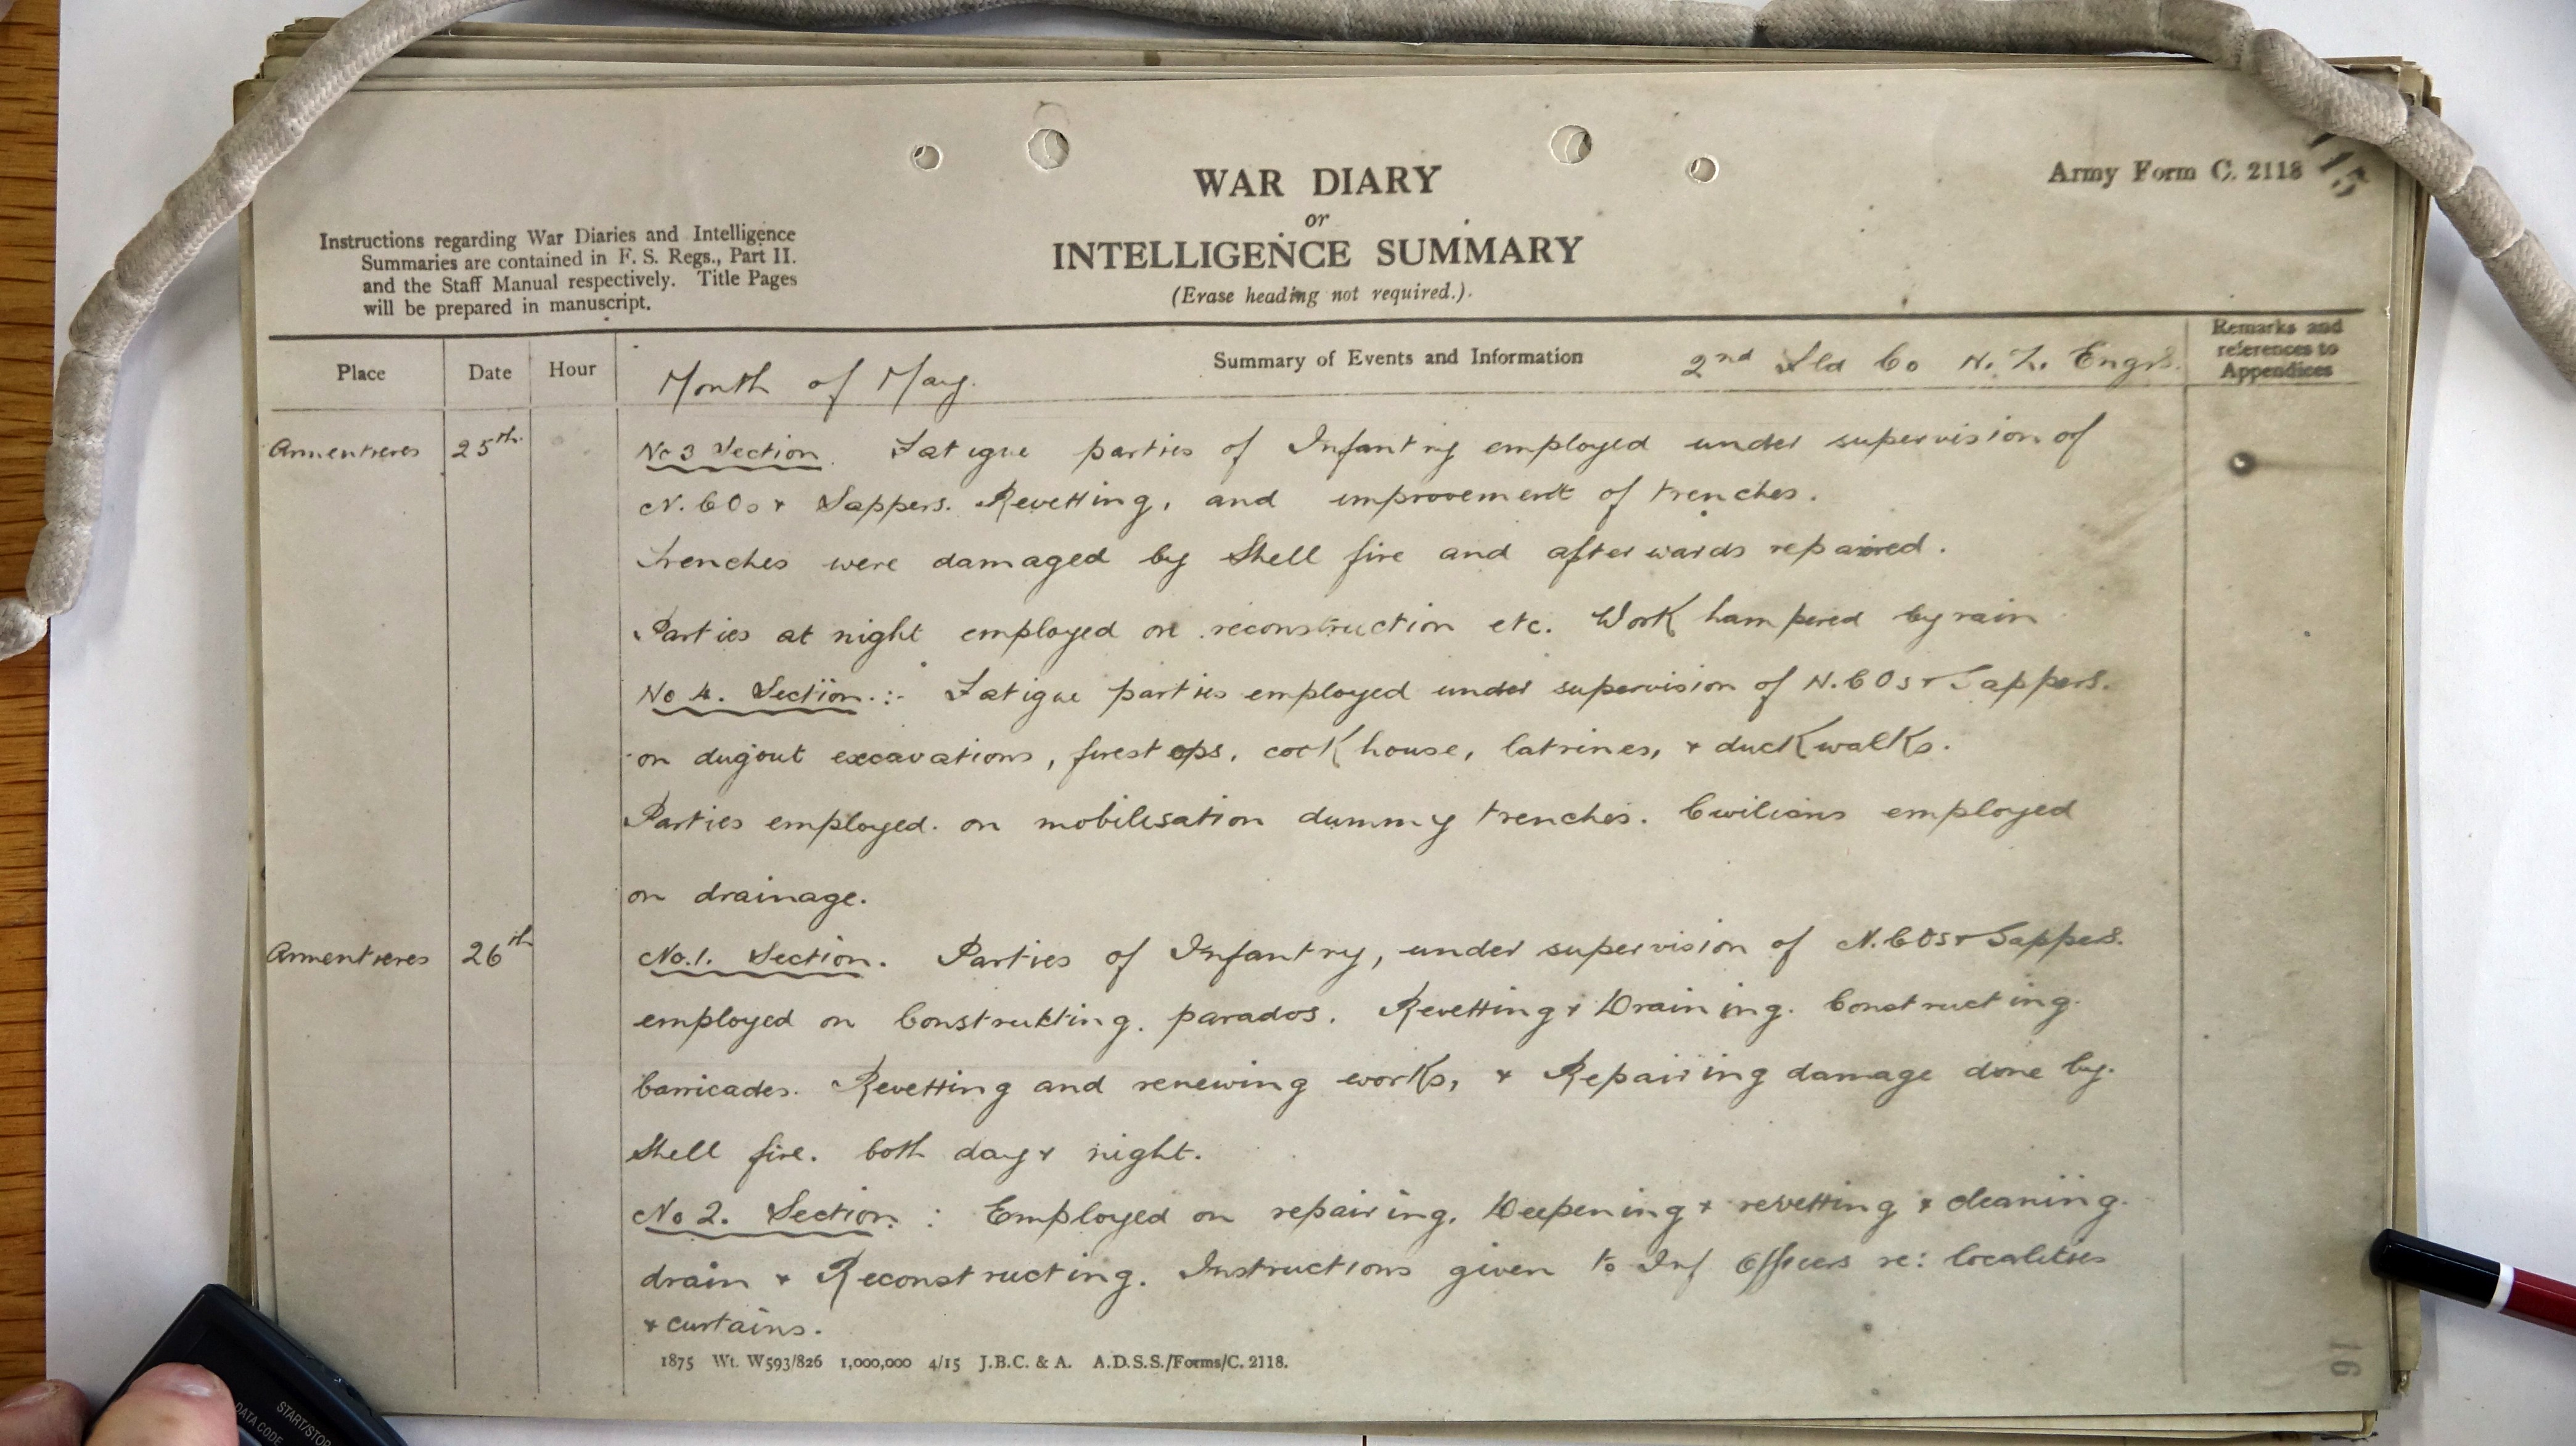 Army Form C. 2118
115
WAR DIARY
or
INTELLIGENCE SUMMARY
(Erase heading not required.)
Instructions regarding War Diaries and Intelligence
Summaries are contained in F. S. Regs., Part II.
and the Staff Manual respectively. Title Pages
will be prepared in manuscript.
Place Date Hour Summary of Events and Information Remarks and
references to
Appendices
Month of May. 2nd Fld Co N. Z. Engrs.
Armentieres 25th. No 3 Section. Fatigue parties of Infantry employed under supervision of
N.COs & Sappers. Revetting, and improvement of trenches.
Trenches were damaged by Shell fire and afterwards repaired.
Parties at night employed on reconstruction etc. Work hampered by rain
No 4. Section.:- Fatigue parties employed under supervision of N.COs & Sappers.
on dugout excavations, firesteps, cook house, latrines, & duckwalks.
Parties employed. on mobilisation dummy trenches. Civilians employed
on drainage.
Armentieres 26th No.1. Section. Parties of Infantry, under supervision of N.COs & Sappers.
employed on Constructing. parados. Revetting & Draining. Constructing.
barricades. Revetting and renewing works, & Repairing damage done by.
Shell fire. both day & night.
No 2. Section. : Employed on repairing. Deepening & revetting & cleaning.
drain & Reconstructing. Instructions given to Inf Officers re: localities
& curtains.
1875 Wt. W593/826 1,000,000 4/15 J.B.C. & A. A.D.S.S./Forms/C. 2118.
16
DATA CODE
START/STOP